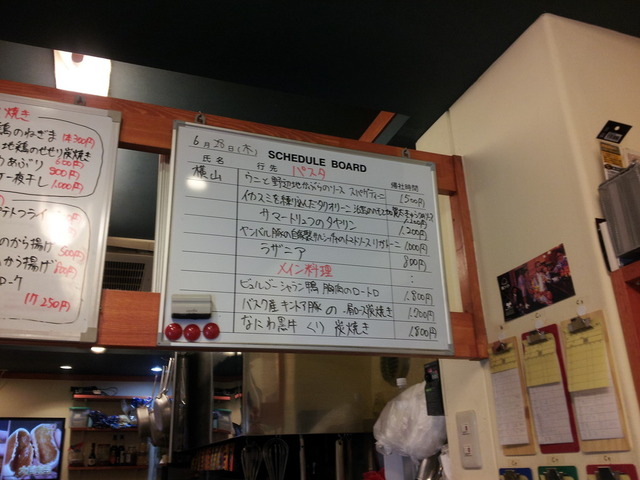 焼き
鶏のねぎま 1本300円
地鶏のせせり炭焼き
あぶり 600円
900円
一夜干し 1,000円
テトフライ
のから揚げ 500円
から揚げ
1ケ 250円
6月28日(木)
SCHEDULE BOARD
氏名 行先 パスタ 帰社時間
横山
ウニと野辺地かぶらのソース スパゲティーニ 1,500円
イカスミを練り込んだタリオリーニ
サマートリュフのタヤリン 1,200円
ヤンバル豚の自家製サルシッチャのトマトソース リガトーニ 1,000円
ラザニア 800円
メイン料理
ビュルゴーシャラン鴨 胸肉のロートロ 1,800円
バスク産キントア豚の 肩ロース炭焼き 1,700円
なにわ黒牛 くり 炭焼き 1,800円